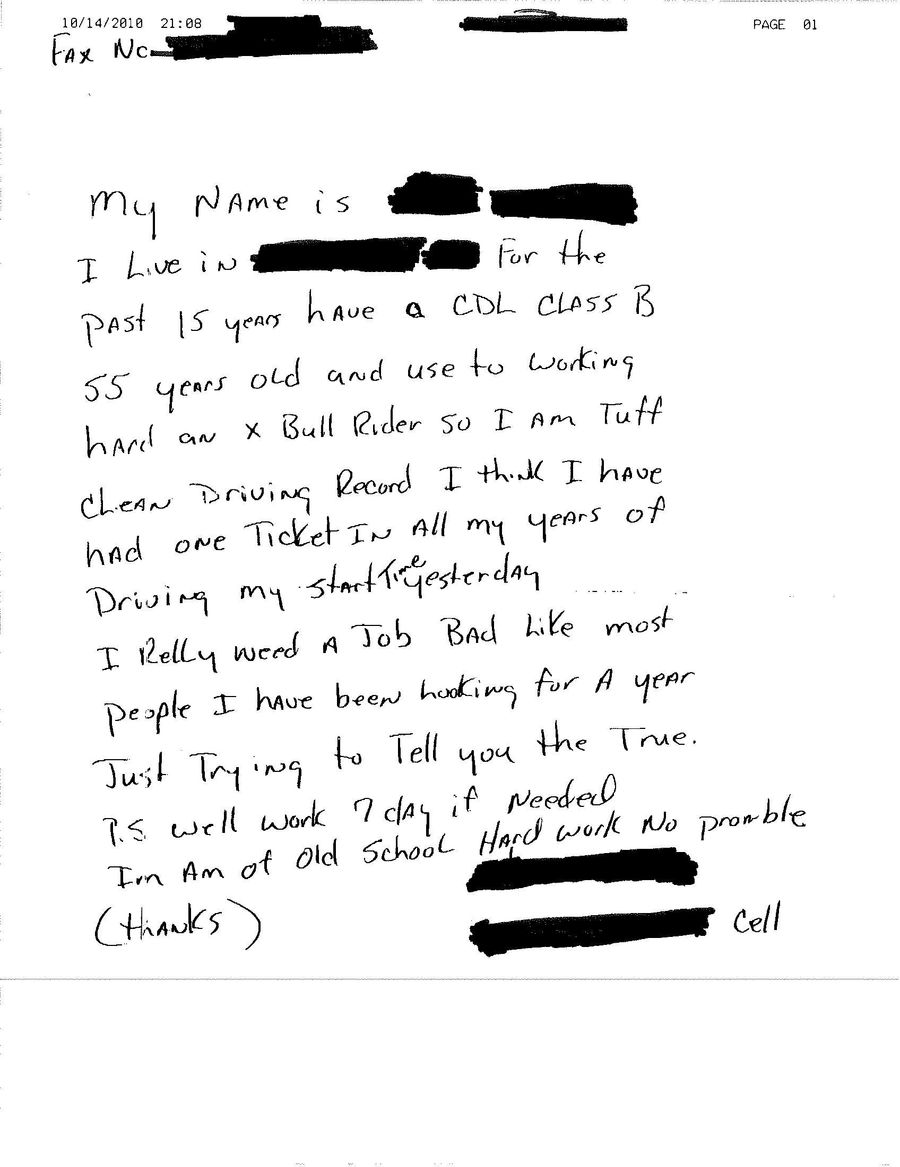 10/14/2010 21:08 PAGE 01
FAX No
My NAMe is
I Live iN For the
PAst 15 yeArs hAve a CDL CLASS B
55 yeArs old and use to working
hArd an x Bull Rider so I Am Tuff
CLeAN Driving Record I think I hAve
hAd oNe Ticket IN All my yeArs of
Driving my start Time yesterdAy
I Relly weed A Job BAd Like most
people I hAve beeN hooking for A yeAr
Just Trying to Tell you the True.
P.S well work 7 dAy if Needed
Im Am of Old School HArd work No promble
(thANks) Cell